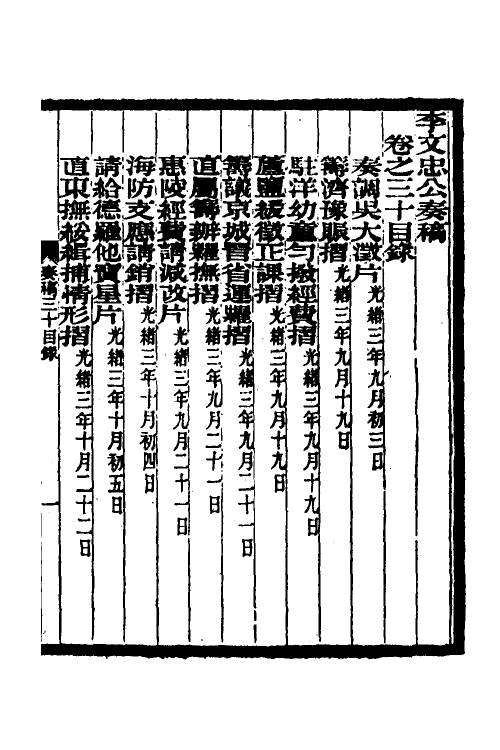 李文忠公奏稿
卷之三十目錄
奏調吳大澂片 光緒三年九月初三日
籌濟豫賑摺 光緒三年九月十九日
駐洋幼童勻撥經費摺 光緒三年九月十九日
蘆鹽緩徵正課摺 光緒三年九月十九日
籌議京城晉省運糶摺 光緒三年九月二十一日
直屬籌辦糶撫摺 光緒三年九月二十一日
惠陵經費請減改片 光緒三年九月二十一日
海防支應請銷摺 光緒三年十月初四日
請給德璀他寶星片 光緒三年十月初五日
直東撫綏緝捕情形摺 光緒三年十月二十二日
奏稿三十目錄 一